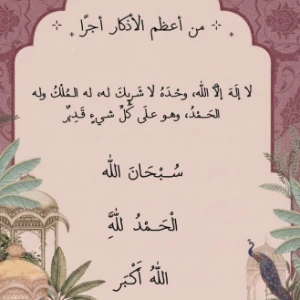 من أعظم الأذكار أجرًا
لا إلَهَ إلَّا اللَّه، وحْدَهُ لا شَرِيكَ له، له المُلْكُ وله
الحَمْدُ، وهو علَى كُلِّ شيءٍ قَدِيرٌ
سُبْحَانَ اللَّه
الْحَمْدُ لِلَّهِ
اللَّهُ أَكْبَر